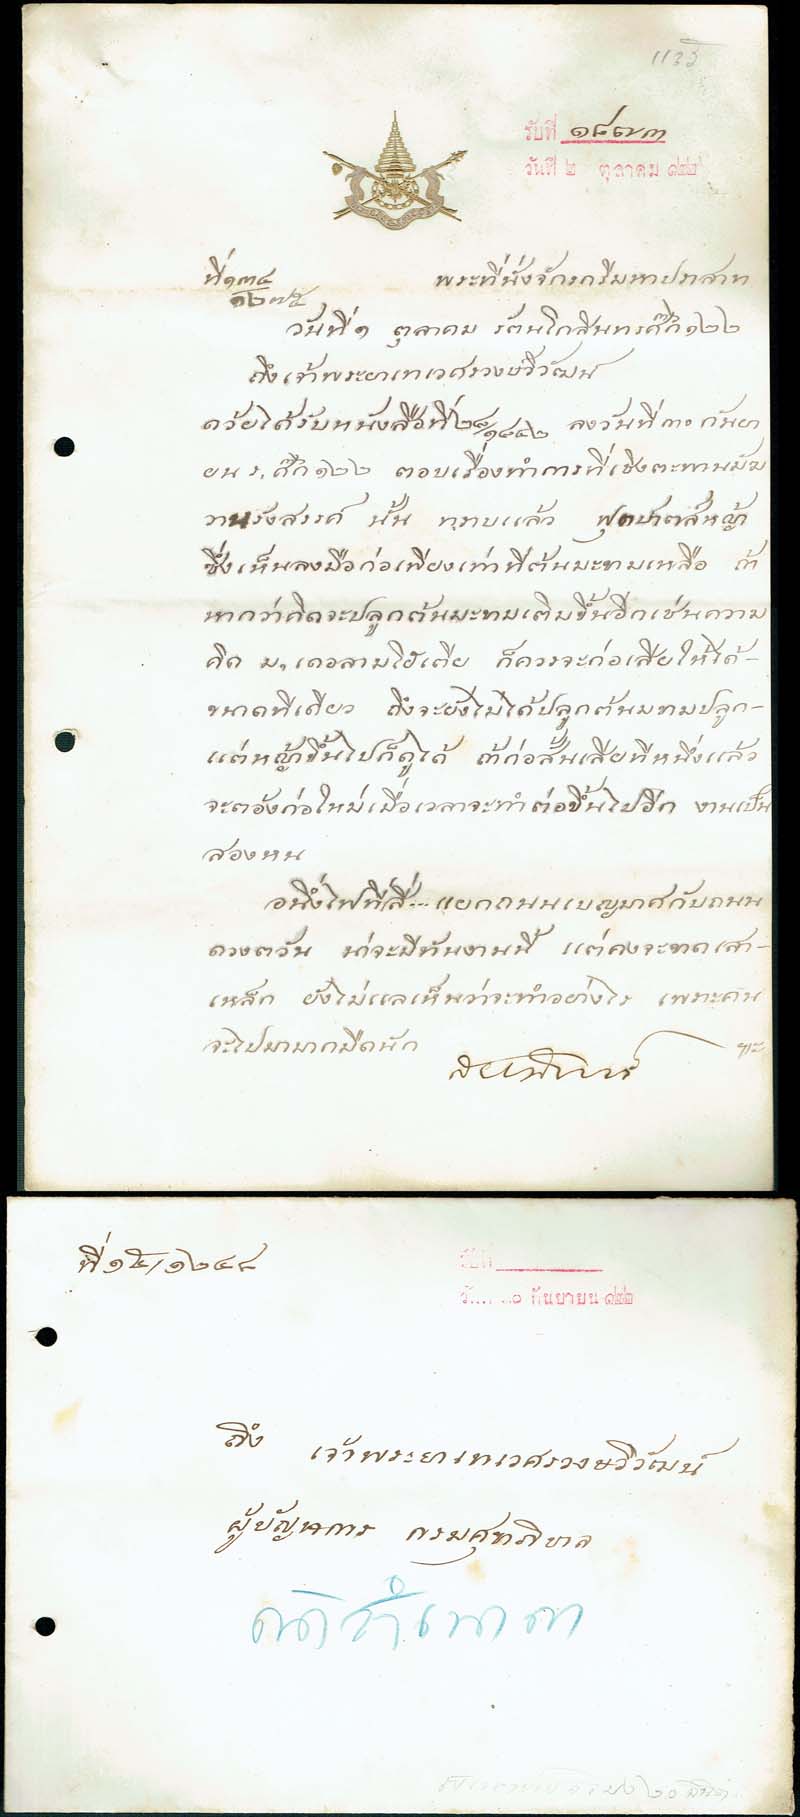 รับที่ ๑๘๗๓
วันที่ ๒ ตุลาคม ๑๒๒
ที่ ๑๓๔ พระที่นั่งจักรกรีมหาปราสาท
วันที่ ๑ ตุลาคม รัตนโกสินทรศก๊ ๑๒๒
ถึงเจ้าพระยาเทเวศรวงษ์วิวัฒน
ด้วยได้รับหนังสือที่ ลงวันที่ ๓๐ กันยา
ยน ร,ศก ๑๒๒ ตอบเรื่องทำการที่เชิงตะพานมัฆ
วานรังสรรค์ นั้น ทราบแล้ว ฟุตปาตสีหญ้า
ซึ่งเห็นลงมือก่อเพียงเท่าที่ต้นมะฮมเหลือ ถ้า
หากว่าคิดจะปลูกต้นมะฮมเติมขึ้นอีกเช่นความ
คิด ม, เดอลามโฮเตีย ก็ควรจะก่อเสียให้ได้-
ขนาดทีเดียว ถึงจะยังไม่ได้ปลูกต้นมฮมปลูก-
แต่หญ้าขึ้นไปก็ดูได้ ถ้าก่อสั้นเสียทีหนึ่งแล้ว
จะต้องก่อใหม่เมื่อเวลาจะทำต่อขึ้นไปอีก งานเป็น
สองหน
อนึ่งไฟที่สี่...แยกถนนเบญมาศกับถนน
ดวงตวัน น่าจะมีทันงานนี้ แต่คงจะขาดเสา-
เหล็ก ยังไม่แลเห็นว่าจะทำอย่างไร เพราะคน
จะไปมามากมืดนัก ฯะ
สยามินทร์
ที่ ๑๕/๑๒๔๘
รับที่
๓๐ กันยายน ๑๒๒
ถึง เจ้าพระยาเทเวศรวงษวิวัฒน์
ผู้บัญชาการ กรมศุขาภิบาล